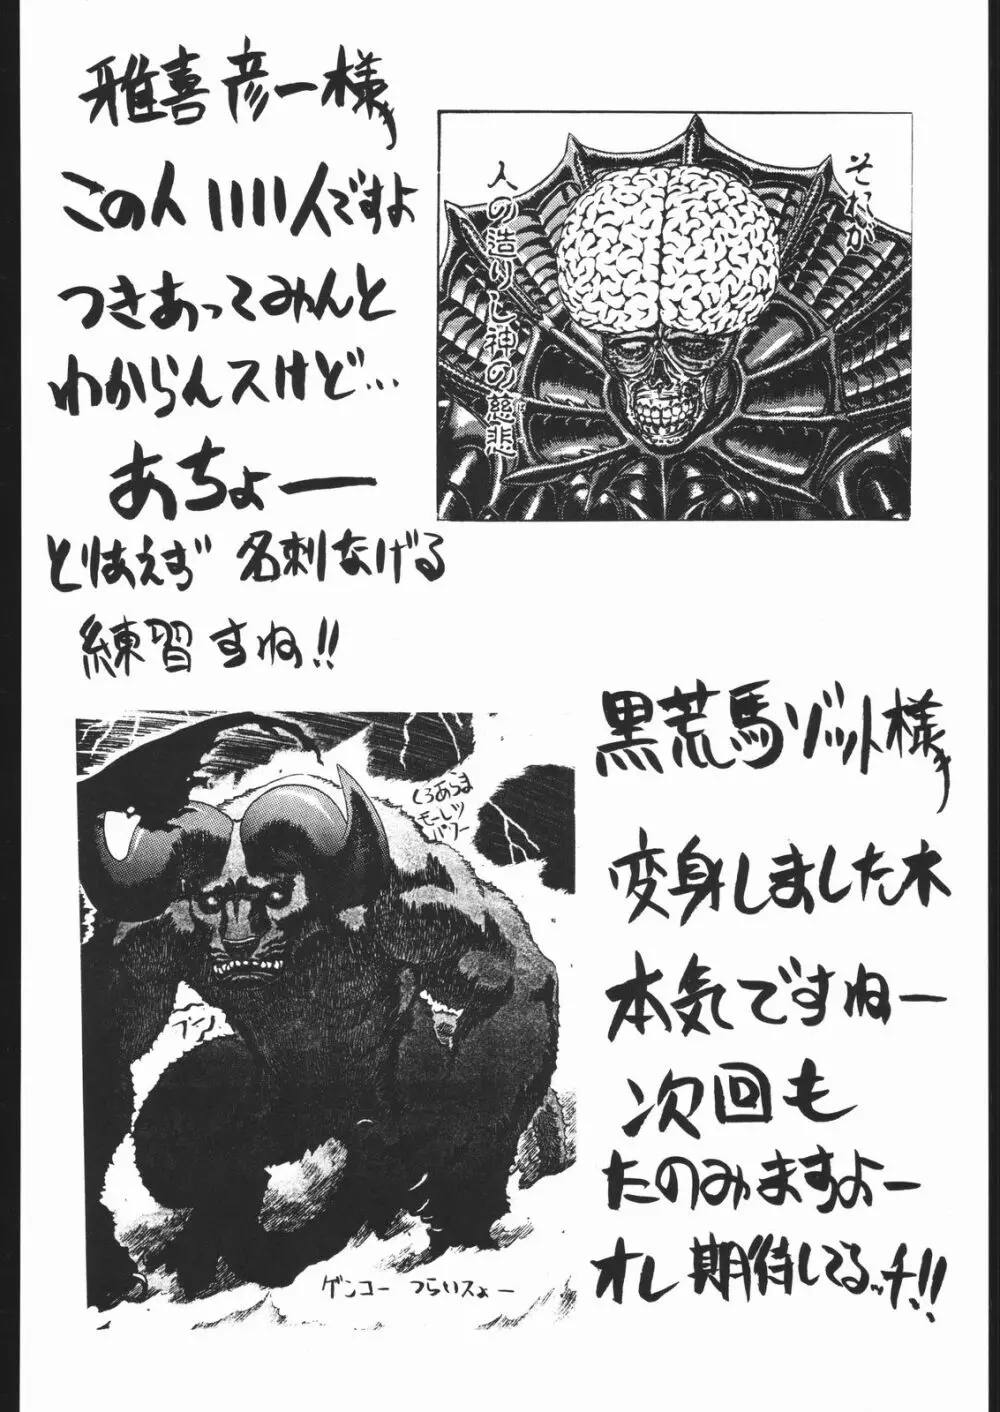 雅喜彦一様
この人いい人ですよ
つきあってみんと
わからんスけど…
あちょー
とりあえず 名刺なげる
練習すね!!
それが
人の造りし神の慈悲
黒荒馬ゾット様
変身しました木
本気ですねー
次回も
たのみますよー
オレ期待してるッチ!!
くろあらま
モーレツ
パワー
ブーン
ゲンコー つらいスよー